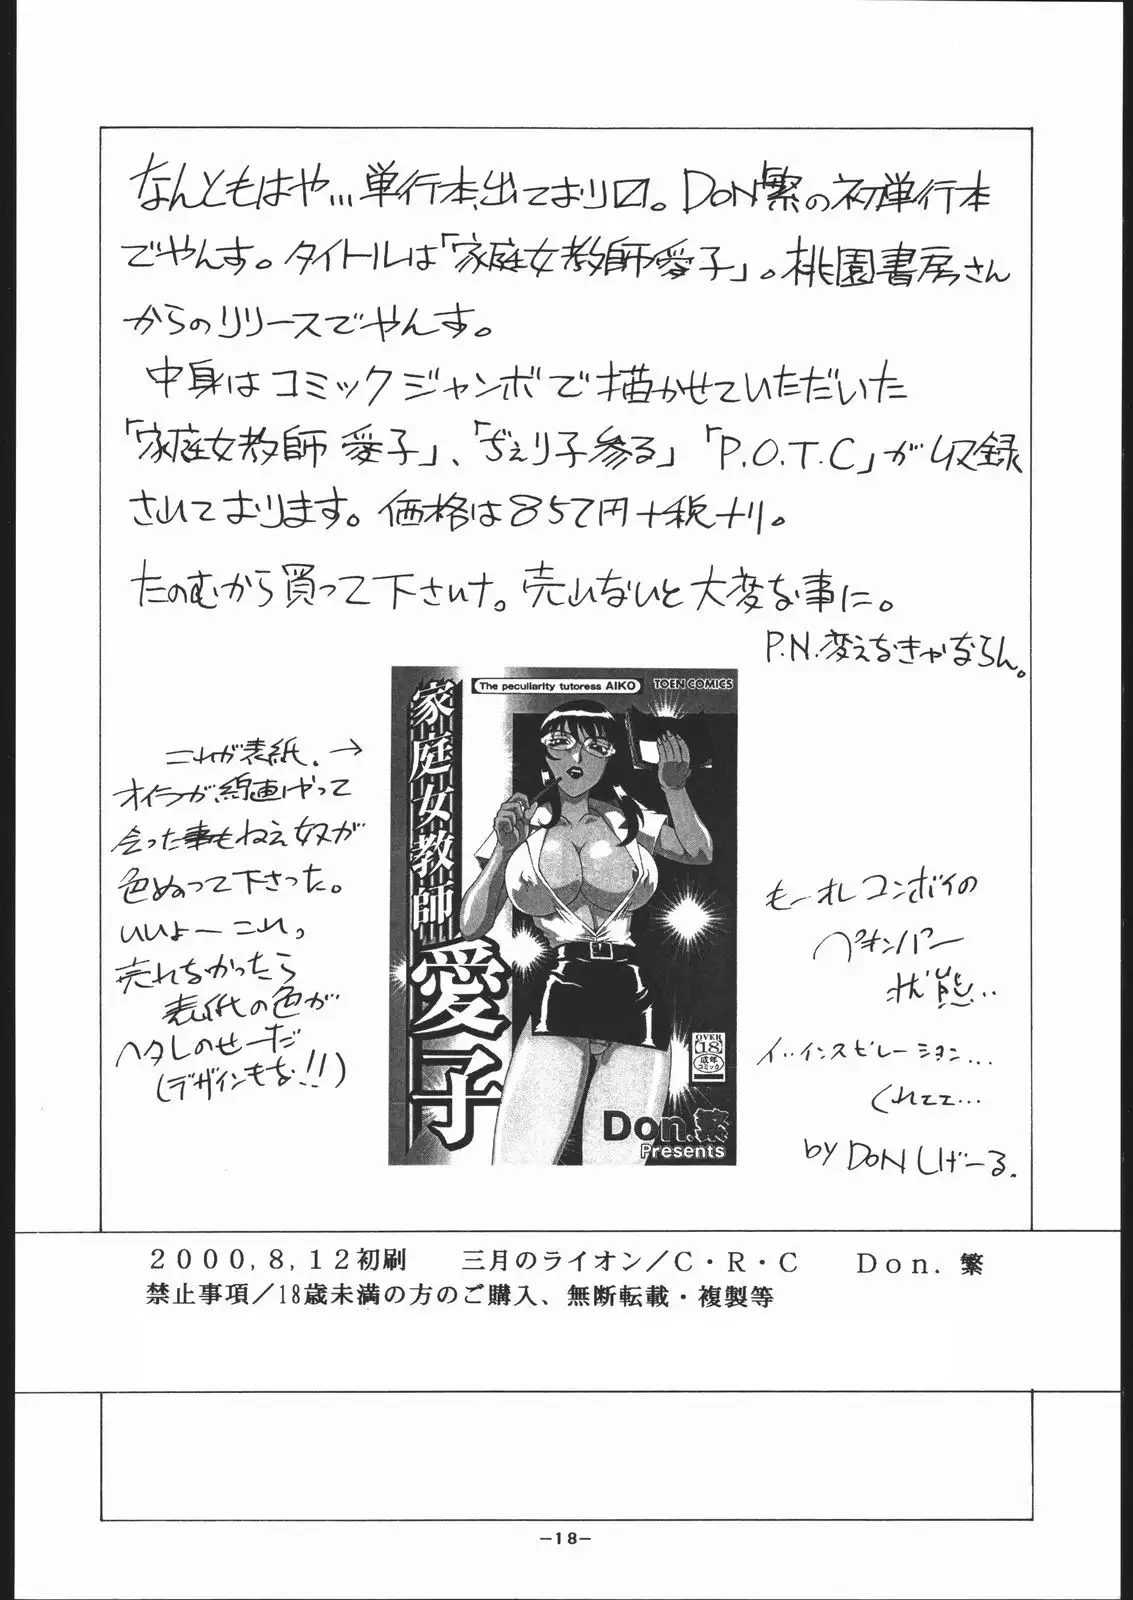 なんともはや...単行本、出ており〼。DON繁の初単行本
でやんす。タイトルは「家庭女教師愛子」。桃園書房さん
からのリリースでやんす。
中身はコミックジャンボで描かせていただいた
「家庭女教師 愛子」、「ぢぇり子参る」「P.O.T.C」が収録
されております。価格は857円+税ナリ。
たのむから買って下さいナ。売れないと大変な事に。
P.N.変えなきゃならん。
The peculiarity tutoress AIKO
TOEN COMICS
家庭女教師
愛子
OVER
18
成年
コミック
Don.繁
Presents
これが表紙。→
オイラが線画けやって
会った事もねえ奴が
色ぬって下さった。
いいよー これっ
売れなかったら
表紙の色が
ヘタレのせーだ
(デザインもな!!)
もーオレコンボイの
ペオンパー
状態...
イ..インスピレーション...
くれてて...
by DON しげーる.
2000,8,12初刷 三月のライオン/C・R・C Don.繁
禁止事項/18歳未満の方のご購入、無断転載・複製等
-18-